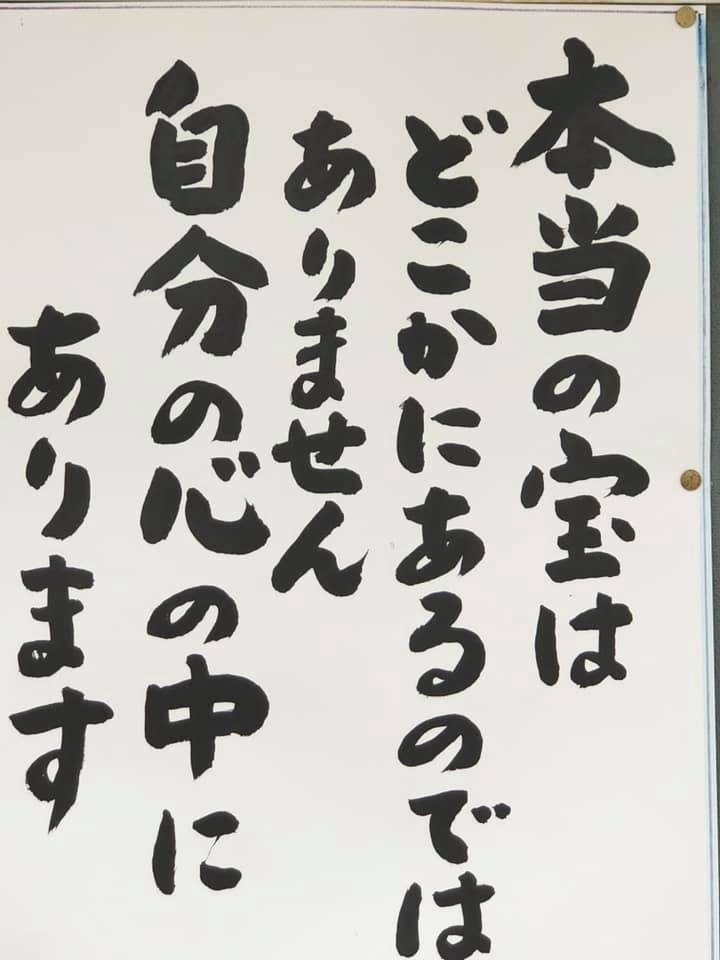 本当の宝は
どこかにあるのでは
ありません
自分の心の中に
あります